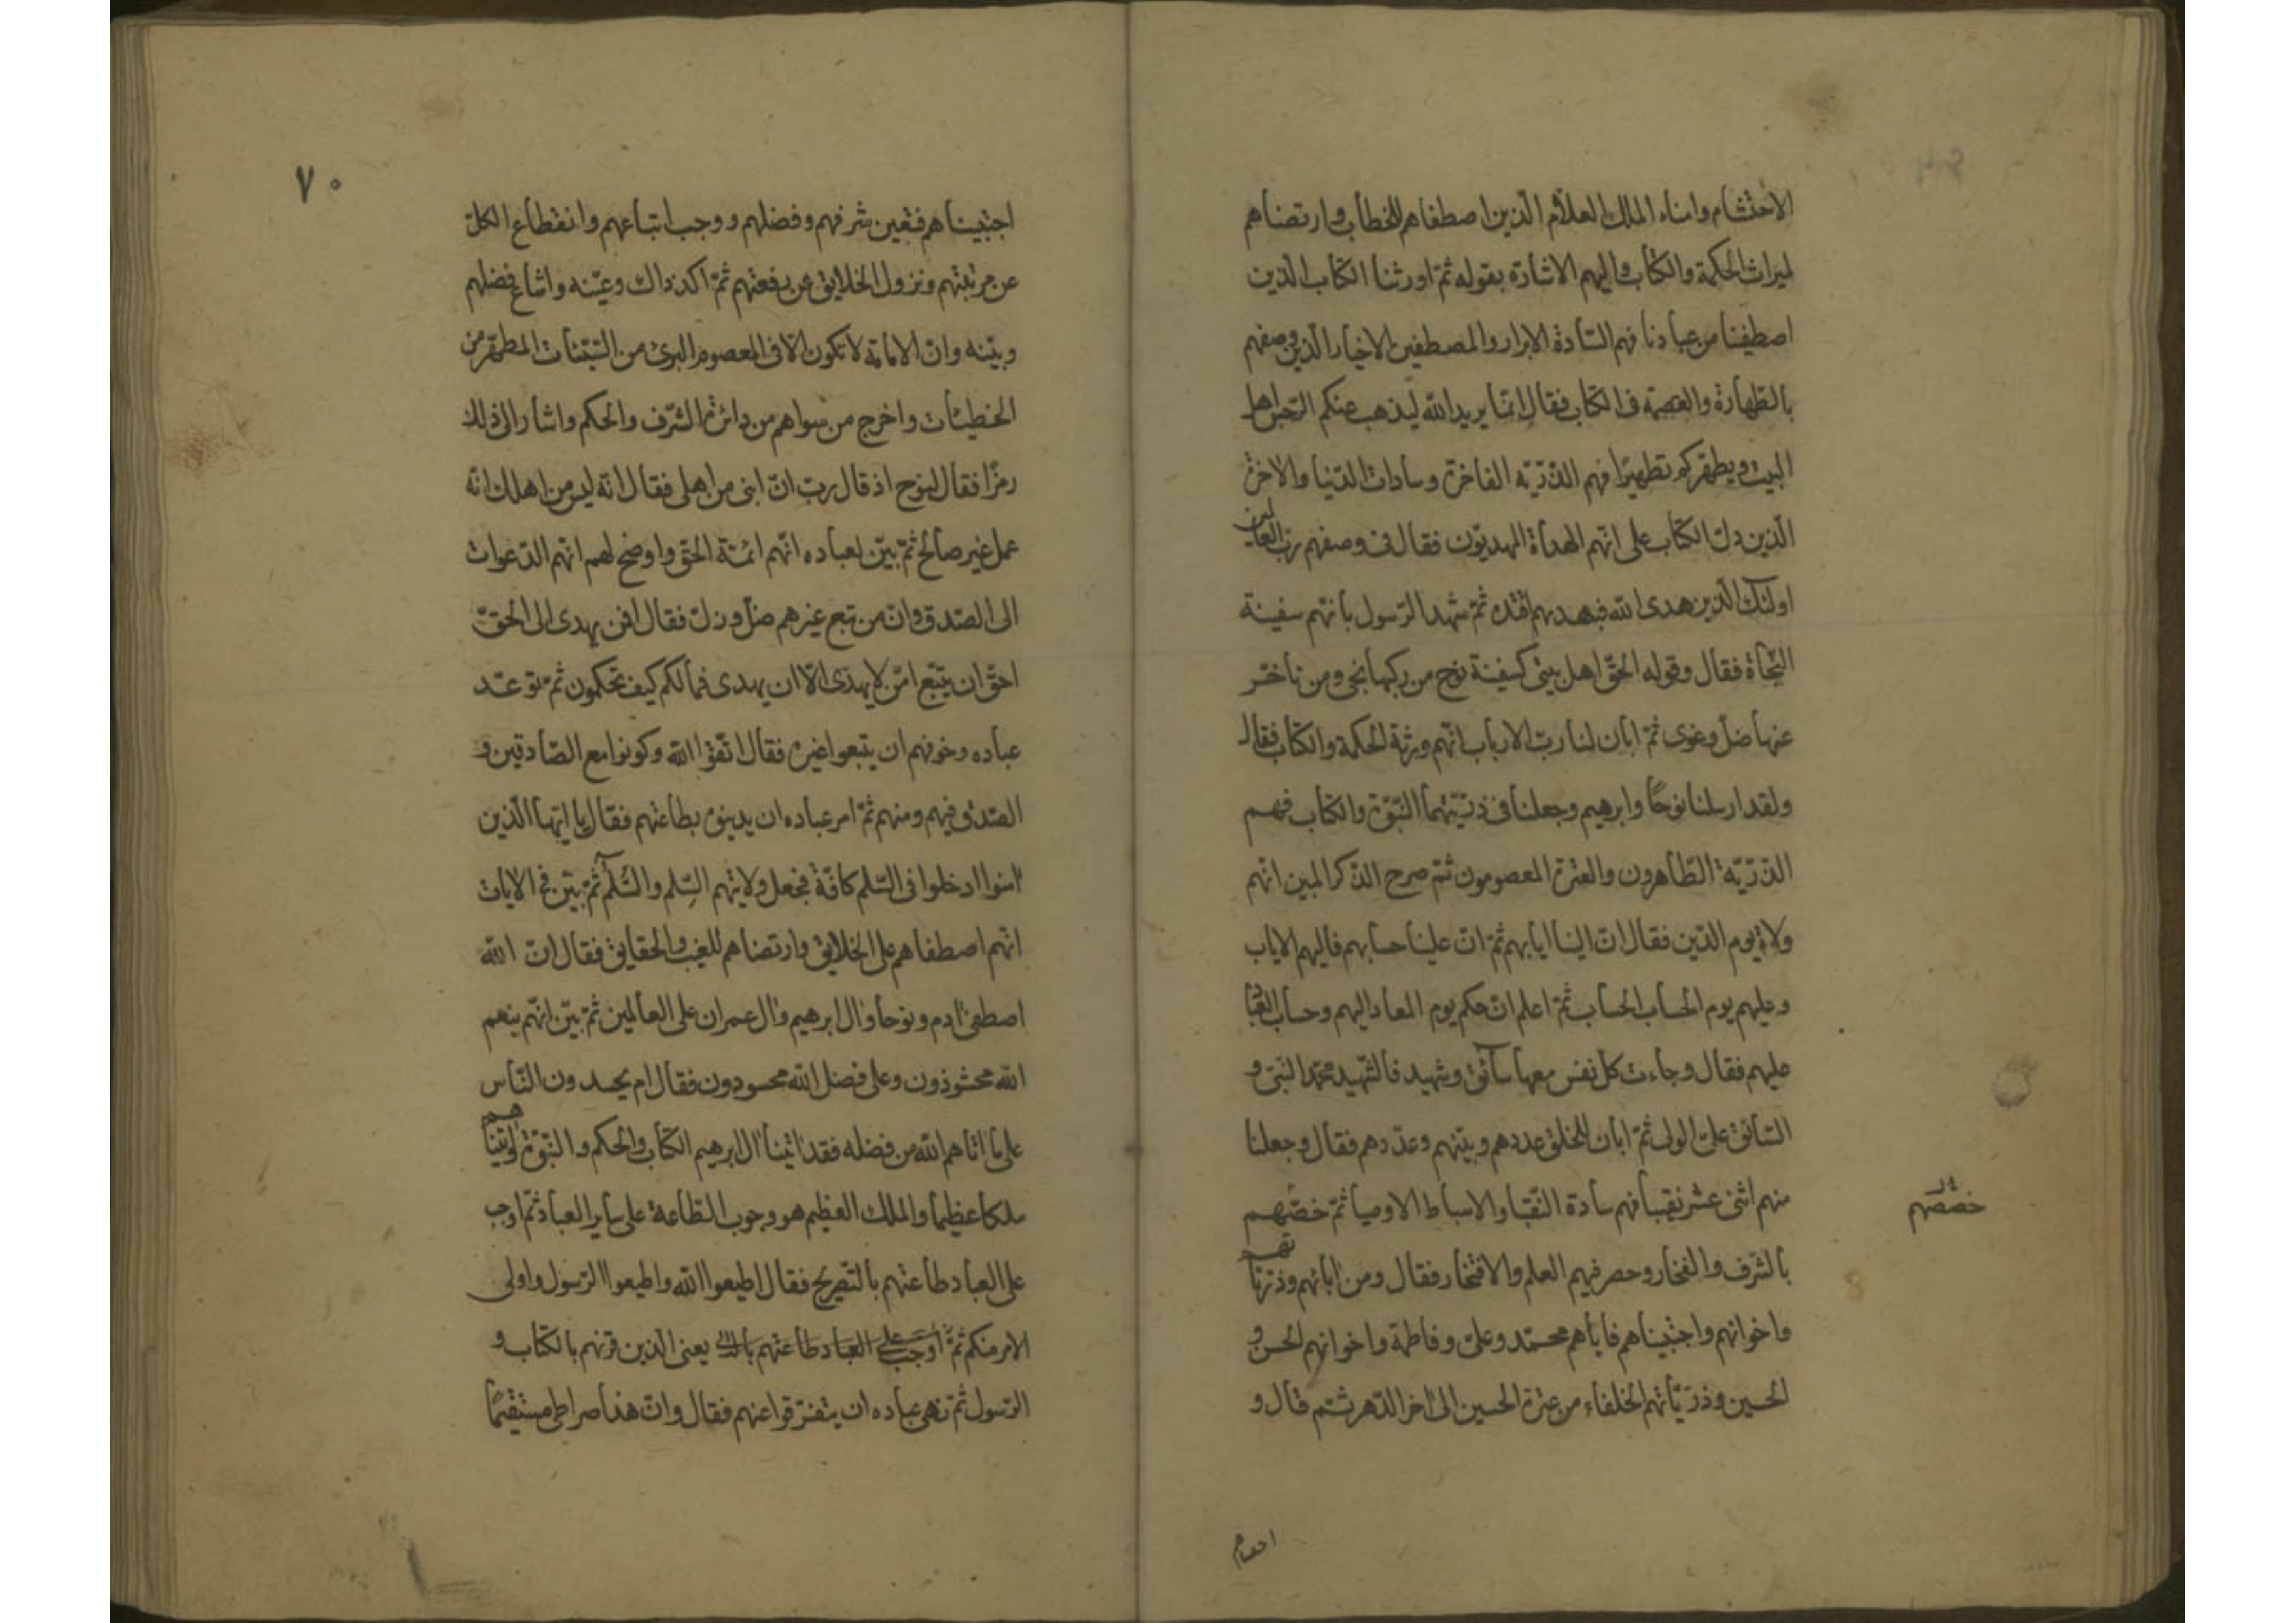 الاحتشام وامناء الملك العلام الّذين اصطفاهم للخطاب وارتضاهم
لميراث الحكمة والكتاب واليهم الاشارة بقوله ثمّ اورثنا الكتاب الّذين
اصطفينا من عبادنا فهم السّادة الابرار والمصطفين الاخيار الّذين وصفهم
بالطّهارة والعصمة فى الكتاب فقال انّما يريد الله ليذهب عنكم الرّجس اهل
البيت ويطهّركم تطهيرًا فهم الذّرّيّة الفاخرة وسادات الدّنيا والاخرة
الّذين دلّ الكتاب على انّهم الهداة المهديّون فقال فى وصفهم ربّ العالمين
اولئك الّذين هدى الله فبهديهم اقتده ثمّ شهد الرّسول بانّهم سفينة
النّجاة فقال وقوله الحقّ اهل بيتى كسفينة نوح من ركبها نجى ومن تاخّر
عنها ضلّ وغوى ثمّ ابان لنا ربّ الارباب انّهم ورثة الحكمة والكتاب فقال
ولقد ارسلنا نوحًا وابرهيم وجعلنا فى ذرّيّتهما النّبوّة والكتاب فهم
الذّرّيّة الطّاهرون والعترة المعصومون ثمّ صرح الذّكر المبين انّهم
ولاة يوم الدّين فقال انّ الينا ايابهم ثمّ انّ علينا حسابهم فاليهم الاياب
وعليهم يوم الحساب الحساب ثمّ اعلم انّ حكم يوم المعاد اليهم وحساب العباد
عليهم فقال وجاءت كلّ نفس معها سآئق وشهيد فالشّهيد محمّد النّبى و
السّائق علىّ الولى ثمّ ابان للخلق عددهم وبيّنهم وعدّدهم فقال وجعلنا
منهم اثنى عشر نقيبا فهم سادة النّقباء والاسباط الاوصيا ثمّ خصّهم
خصّصهم
بالشّرف والفخار وحصر فيهم العلم والافتخار فقال ومن ابائهم وذرّيّاتهم
واخوانهم واجتبيناهم فاباهم محمّد وعلىّ وفاطمة واخوانهم الحسن و
الحسين وذرّيّاتهم الخلفاء من عترة الحسين الى اخر الدّهر ثم قال و
٧٠
اجتبيناهم فتعين شرفهم وفضلهم ووجب اتباعهم وانقطاع الكلّ
عن مرتبتهم ونزول الخلايق عن رفعتهم ثمّ اكد ذاك وعيّنه واشاع فضلهم
وبيّنه وانّ الامامة لا تكون الّا فى المعصوم البرىء من السّيّئات المطهّر من
الخطيئات واخرج من سواهم من دائرة الشّرف والحكم واشار الى ذلك
رمزًا فقال لنوح اذ قال ربّ انّ ابنى من اهلى فقال انّه ليس من اهلك انّه
عمل غير صالح ثمّ بيّن لعباده انّهم ائمّة الحقّ واوضح لهم انّهم الدّعوات
الى الصّدق وانّ من تبع غيرهم ضلّ وزلّ فقال افمن يهدى الى الحقّ
احقّ ان يتّبع امّن لا يهدّى الّا ان يهدى فمالكم كيف تحكمون ثمّ توعّد
عباده وخوفهم ان يتبعوا غيره فقال اتّقوا الله وكونوا مع الصّادقين و
الصّدق فيهم ومنهم ثمّ امر عباده ان يدينوا بطاعتهم فقال يا ايّها الّذين
امنوا ادخلوا فى السّلم كافّة فجعل ولايتهم السّلم والسّلم ثمّ بيّن فى الايات
انّهم اصطفاهم على الخلايق وارتضاهم للغيب والحقايق فقال انّ الله
اصطفى ادم ونوحا وال ابرهيم وال عمران على العالمين ثمّ بيّن انّهم بنعم
الله محسودون وعلى فضل الله محسودون فقال ام يحسدون النّاس
على ما اتاهم الله من فضله فقد اتينا ال ابرهيم الكتاب والحكم والنّبوّة واتيناهم
ملكا عظيما والملك العظيم هو وجوب الطّاعة على ساير العباد ثمّ اوجب
على العباد طاعتهم بالتّصريح فقال اطيعوا الله واطيعوا الرّسول واولى
الامر منكم ثمّ اوجب على العباد طاعتهم يعنى الّذين قرنهم بالكتاب و
الرّسول ثمّ نهى عباده ان يتفرّقوا عنهم فقال وانّ هذا صراطى مستقيمًا